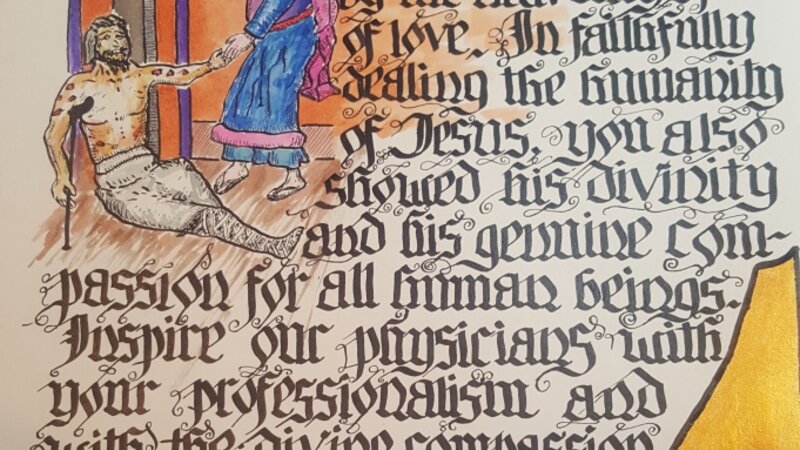 by the
of love. In faithfully
dealing the humanity
of Jesus, you also
showed his divinity
and his genuine com-
passion for all human beings.
Inspire our physicians with
your professionalism and
with the divine compassion